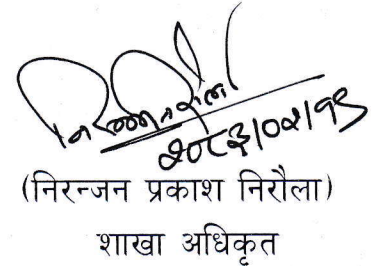 २०८३/०२/१९
(निरन्जन प्रकाश निरौला)
शाखा अधिकृत